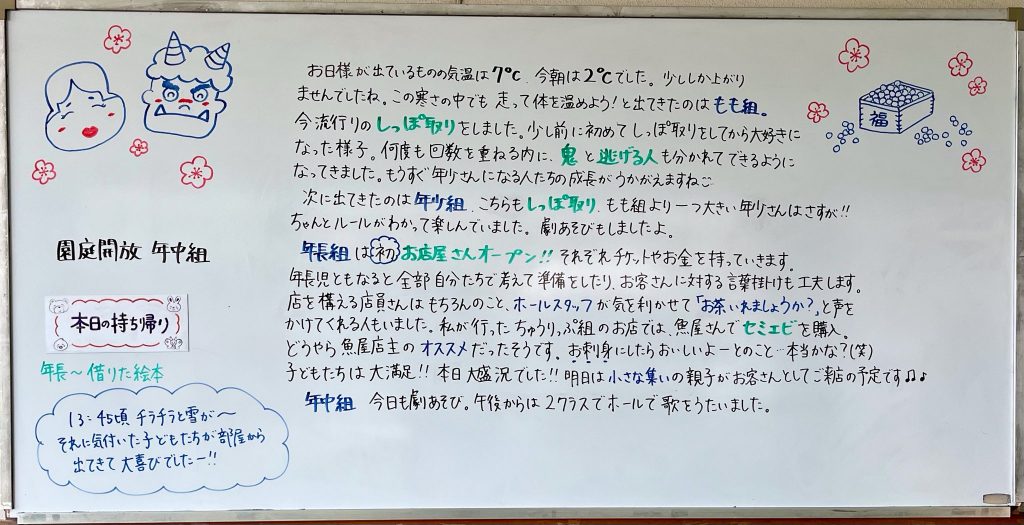 お日様が出ているものの気温は7℃、今朝は2℃でした。少ししか上がり
ませんでしたね。この寒さの中でも 走って体を温めよう!と出てきたのは もも組。
今流行りの しっぽ取りをしました。少し前に初めて しっぽ取りをしてから大好きに
なった様子。何度も回数を重ねる内に、鬼と逃げる人も分かれてできるように
なってきました。もうすぐ年少さんになる人たちの成長がうかがえますね☺
次に出てきたのは 年少組、こちらも しっぽ取り、もも組より一つ大きい年少さんはさすが!!
ちゃんとルールがわかって楽しんでいました。劇あそびもしましたよ。
年長組は 初 お店屋さんオープン!! それぞれチケットやお金を持っていきます。
年長児ともなると全部自分たちで考えて準備をしたり、お客さんに対する言葉掛けも工夫します。
店を構える店員さんはもちろんのこと、ホールスタッフが気を利かせて「お茶いれましょうか?」と声を
かけてくれる人もいました。私が行ったちゅうりっぷ組のお店では、魚屋さんでセミエビを購入。
どうやら魚屋店主のオススメだったそうです。お刺身にしたらおいしいよーとのこと…本当かな?(笑)
子どもたちは大満足!! 本日大盛況でした!! 明日は小さな集いの親子がお客さんとしてご来店の予定です♫♪
年中組 今日も劇あそび。午後からは2クラスでホールで歌をうたいました。
福
園庭開放 年中組
本日の持ち帰り
年長〜借りた絵本
13:45頃 チラチラと雪が〜
それに気付いた子どもたちが部屋から
出てきて大喜びでしたー!!